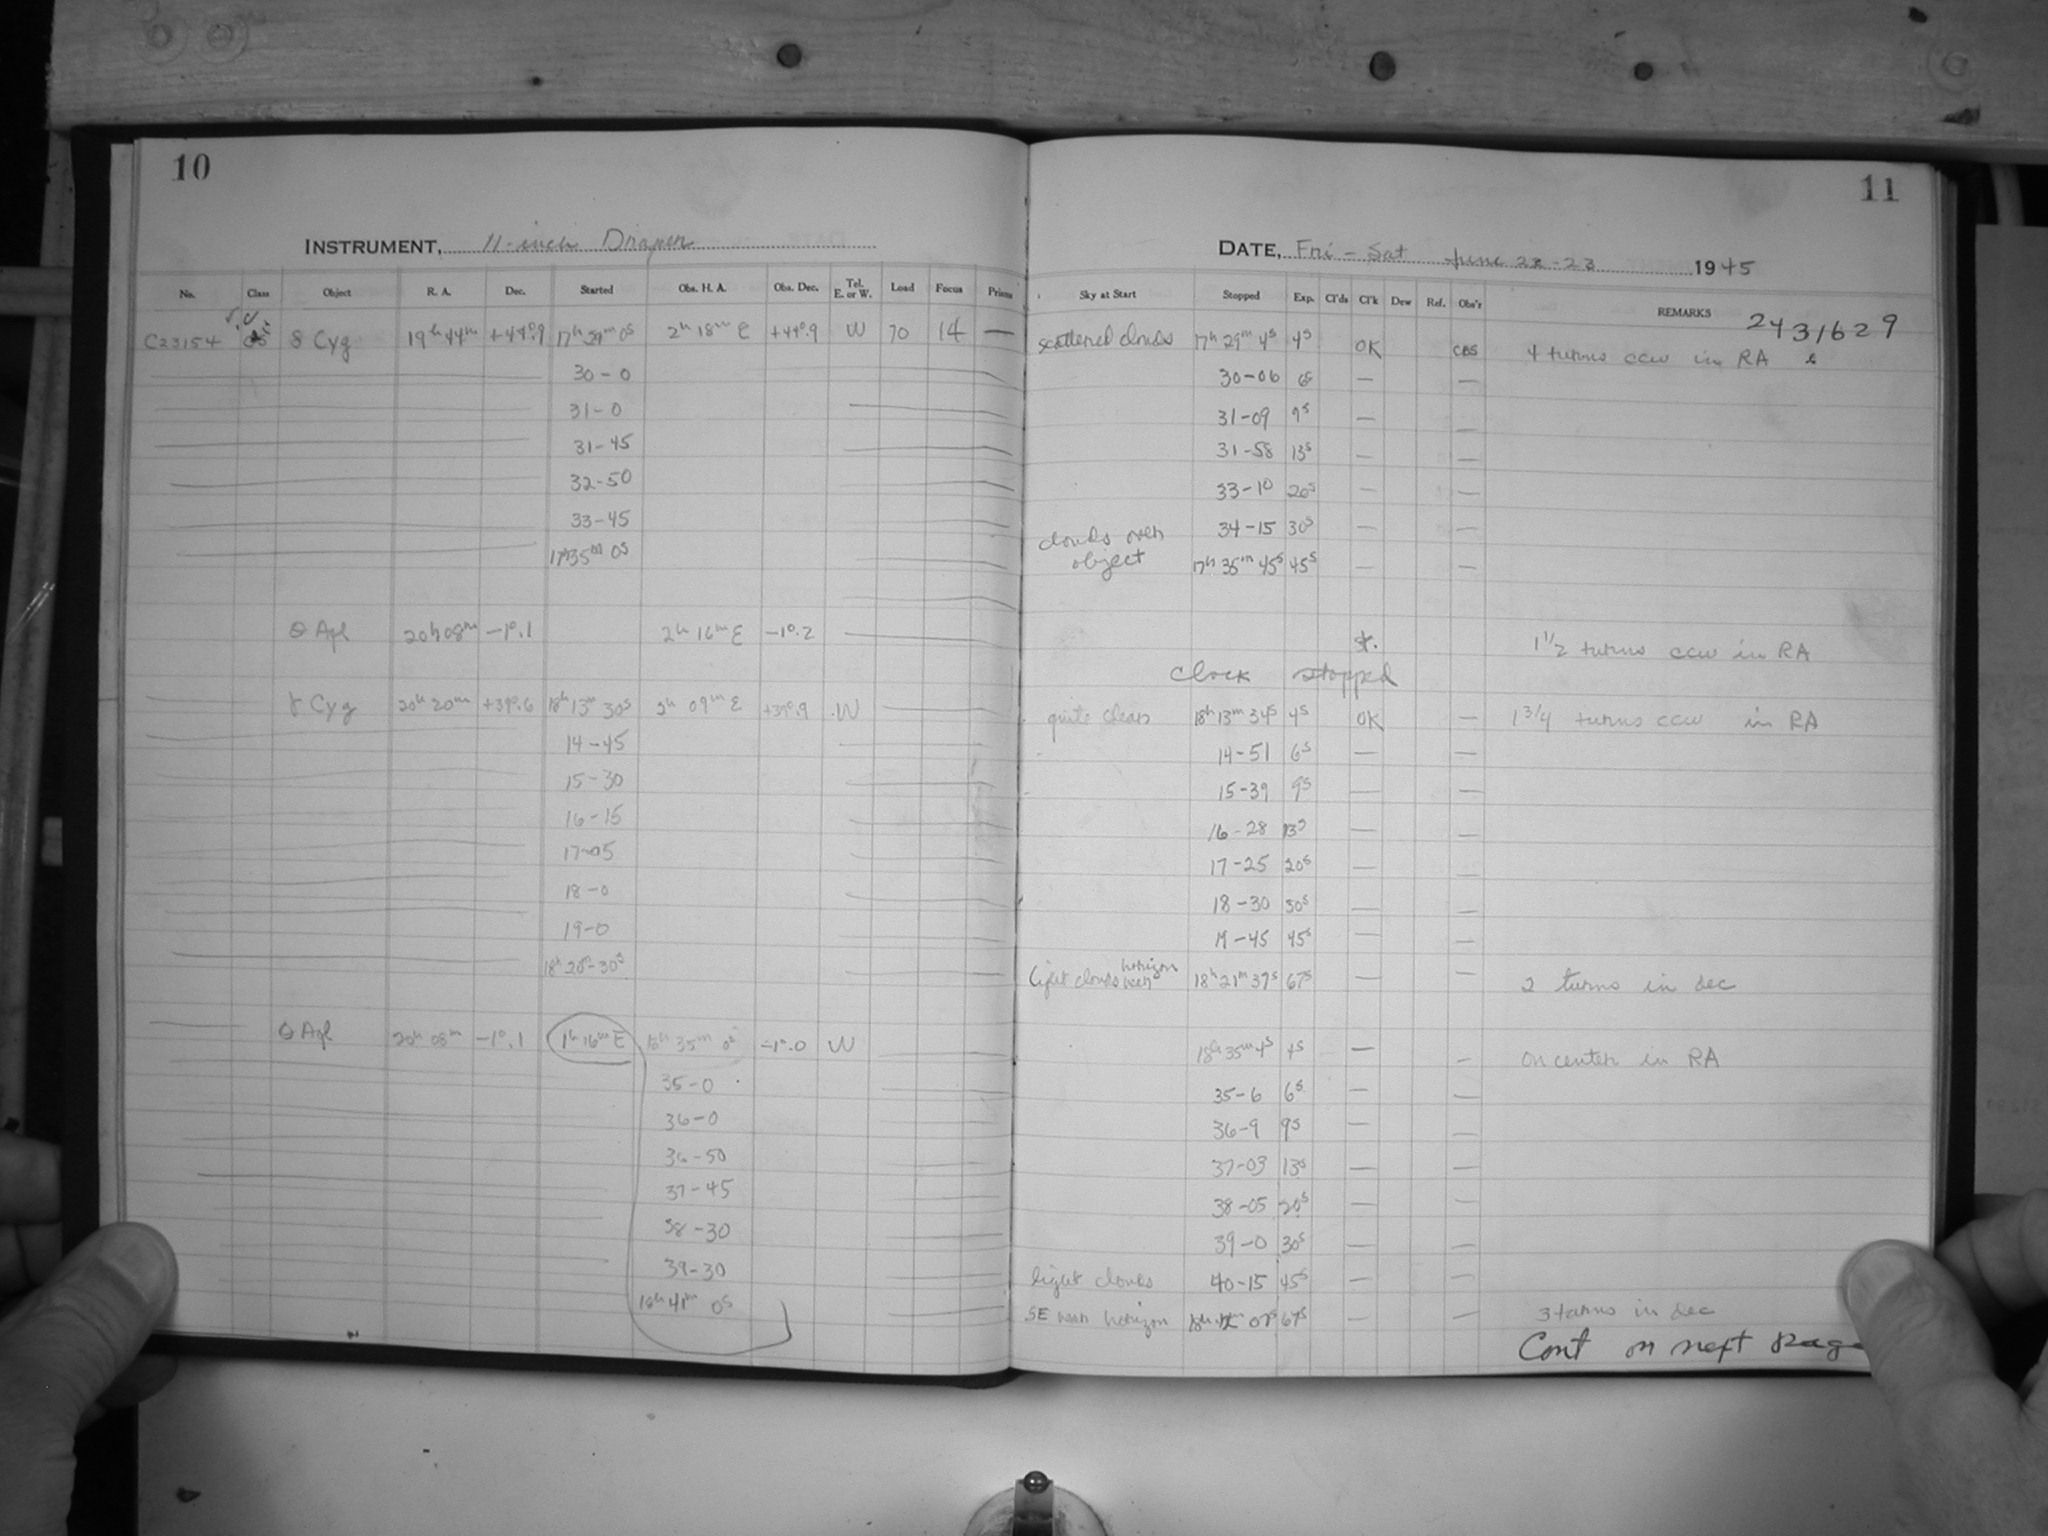 10
INSTRUMENT, 11-inch Draper
No. Class Object R. A. Dec. Started Obs. H. A. Obs. Dec. Tel. E. or W. Load Focus Prisms
C23154 δ Cyg 19h 44m +44°.9 17h 29m 0s 2h 18m E +44°.9 W 70 14 —
30-0
31-0
31-45
32-50
33-45
17h35m 0s
θ Aql 20h 08m -1°.1 2h 16m E -1°.2
γ Cyg 20h 20m +39°.6 18h 13m 30s 2h 09m E +39°.9 W
14-45
15-30
16-15
17-05
18-0
19-0
18h 20m-30s
θ Aql 20h 08m -1°.1 1h 16m E 18h 35m 0s -1°.0 W
35-0
36-0
36-50
37-45
38-30
39-30
41m 0s
11
DATE, Fri - Sat June 22-23 1945
Sky at Start Stopped Exp. Cl'ds Cl'k Dew Ref. Obs'r REMARKS 2431629
scattered clouds 17h 29m 4s 4s OK CBS 4 turns ccw in RA
30-06 6s — —
31-09 9s — —
31-58 13s — —
33-10 20s — —
34-15 30s — —
clouds over object 17h 35m 45s 45s — —
st. 1 1/2 turns ccw in RA
Clock stopped
quite clear 18h 13m 34s 4s OK — 1 3/4 turns ccw in RA
14-51 6s — —
15-39 9s — —
16-28 13s — —
17-25 20s — —
18-30 30s — —
19-45 45s — —
light clouds near horizon 18h 21m 37s 67s — — 2 turns in dec
18h 35m 4s 4s — — on center in RA
35-6 6s — —
36-9 9s — —
37-03 13s — —
38-05 20s — —
39-0 30s — —
light clouds 40-15 45s — —
SE near horizon 07s 67s — — 3 turns in dec
Cont on next page